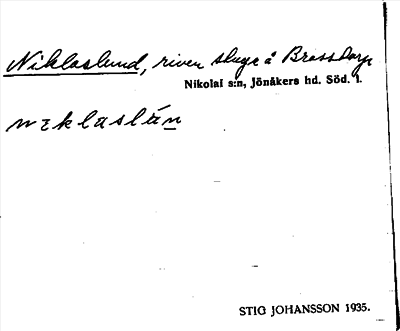 Niklaslund, riven stuga å Brossdorp
Nikolai s:n, Jönåkers hd. Söd. l.
nɪklaslún
STIG JOHANSSON 1935.